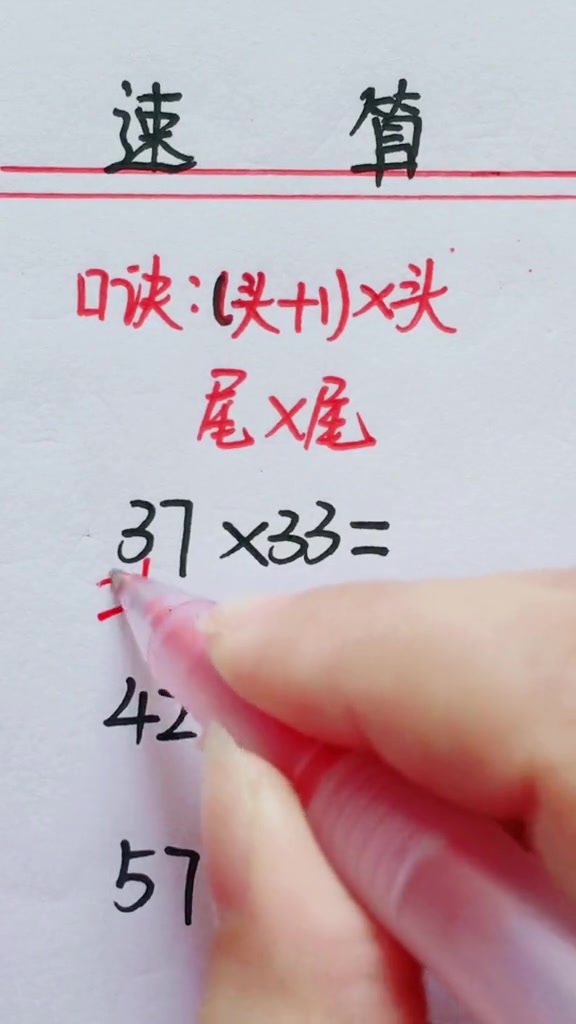 速 算
口诀:(头+1)×头
尾×尾
37×33=
42
57